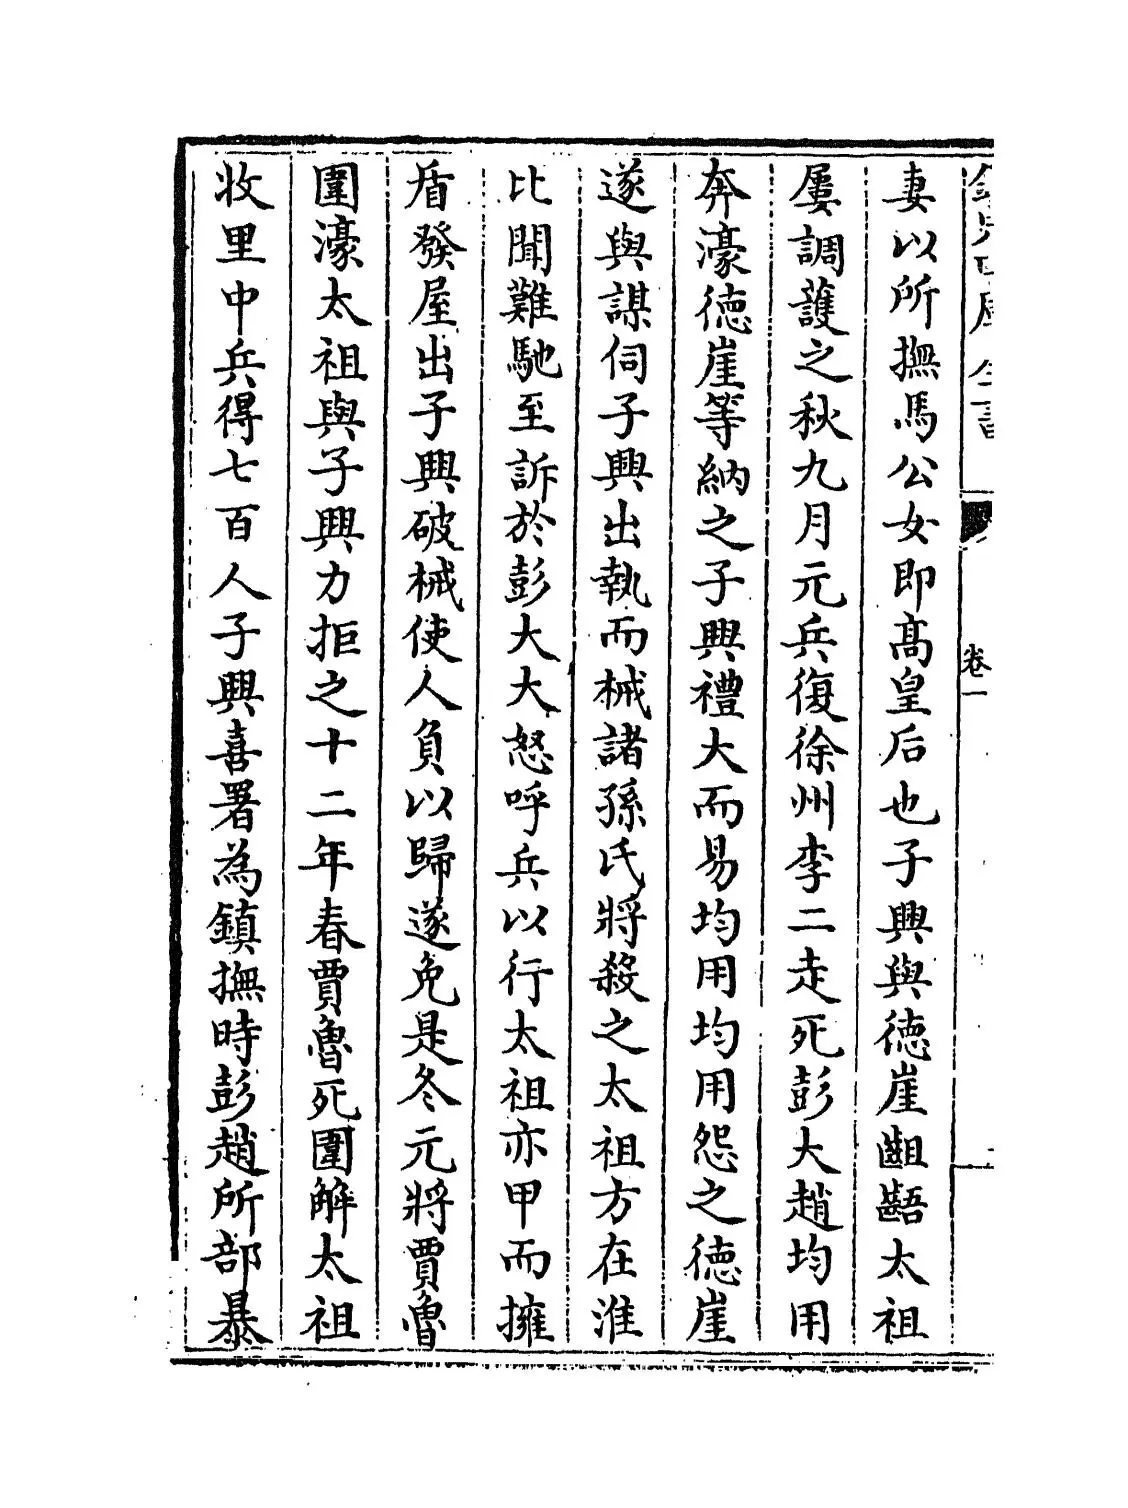 欽定四庫全書
卷一
妻以所撫馬公女即髙皇后也子興與徳崖齟齬太祖
屢調䕶之秋九月元兵復徐州李二走死彭大趙均用
奔濠徳崖等納之子興禮大而易均用均用怨之徳崖
遂與謀伺子興出執而械諸孫氏將殺之太祖方在淮
比聞難馳至訴於彭大大怒呼兵以行太祖亦甲而擁
盾發屋出子興破械使人負以歸遂免是冬元將賈魯
圍濠太祖與子興力拒之十二年春賈魯死圍解太祖
收里中兵得七百人子興喜署為鎮撫時彭趙所部暴